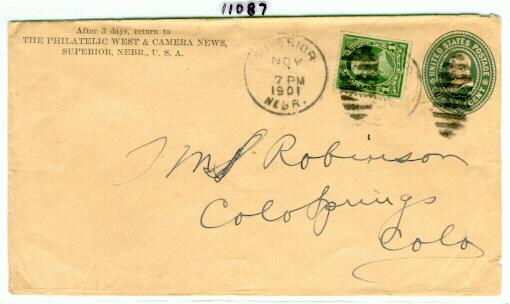 11087
After 3 days, return to
THE PHILATELIC WEST & CAMERA NEWS,
SUPERIOR, NEBR., U. S. A.
SUPERIOR
NOV
7 PM
1901
NEBR.
UNITED STATES POSTAGE
CENT
Robinson
Colo Springs
Colo